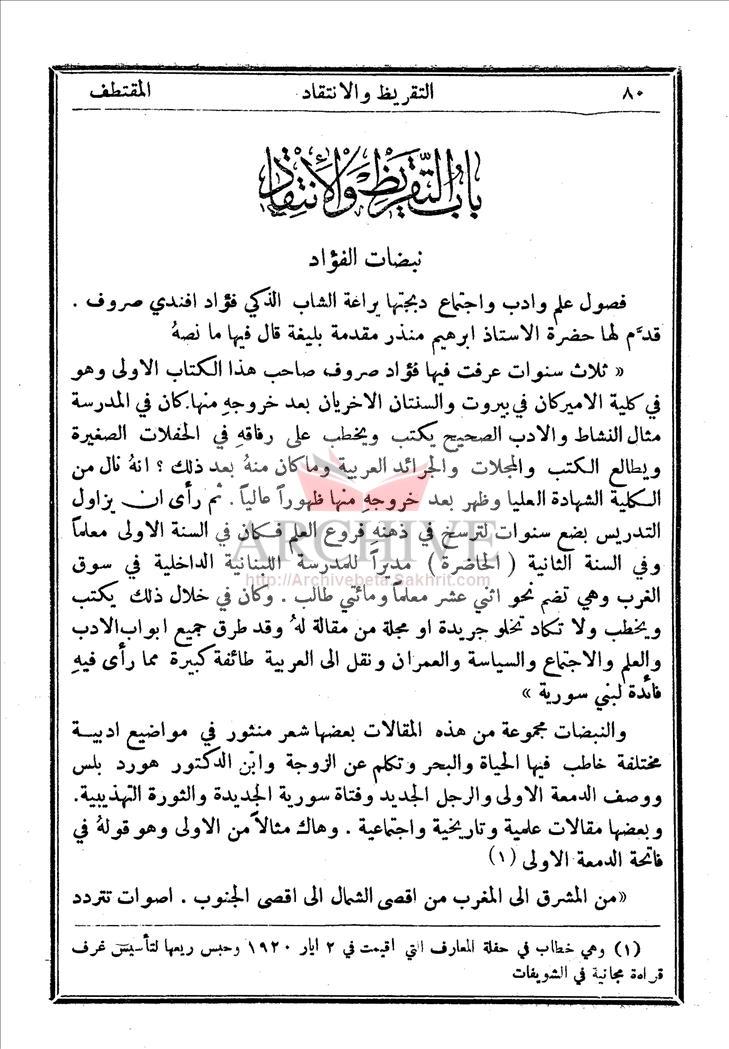 ٨٠ التقريظ والانتقاد المقتطف
باب التقريظ والانتقاد
نبضات الفؤاد
فصول علم وادب واجتماع دبجتها يراعة الشاب الذكي فؤاد افندي صروف .
قدَّم لها حضرة الاستاذ ابرهيم منذر مقدمة بليغة قال فيها ما نصهُ
« ثلاث سنوات عرفت فيها فؤاد صروف صاحب هذا الكتاب الاولى وهو
في كلية الاميركان في بيروت والسنتان الاخريان بعد خروجهِ منها. كان في المدرسة
مثال النشاط والادب الصحيح يكتب ويخطب على رفاقهِ في الحفلات الصغيرة
ويطالع الكتب والمجلات والجرائد العربية وما كان منهُ بعد ذلك ؟ انهُ نال من
الكلية الشهادة العليا وظهر بعد خروجهِ منها ظهوراً عالياً . ثم رأى ان يزاول
التدريس بضع سنوات لترسخ في ذهنهِ فروع العلم فكان في السنة الاولى معلماً
وفي السنة الثانية ( الحاضرة ) مديراً للمدرسة اللبنانية الداخلية في سوق
الغرب وهي تضم نحو اثني عشر معلماً ومائتي طالب . وكان في خلال ذلك يكتب
ويخطب ولا تكاد تخلو جريدة او مجلة من مقالة لهُ وقد طرق جميع ابواب الادب
والعلم والاجتماع والسياسة والعمران ونقل الى العربية طائفة كبيرة مما رأى فيهِ
فائدة لبني سورية »
والنبضات مجموعة من هذه المقالات بعضها شعر منثور في مواضيع ادبية
مختلفة خاطب فيها الحياة والبحر وتكلم عن الزوجة وابن الدكتور هورد بلس
ووصف الدمعة الاولى والرجل الجديد وفتاة سورية الجديدة والثورة التهذيبية.
وبعضها مقالات علمية وتاريخية واجتماعية . وهاك مثالاً من الاولى وهو قولهُ في
فاتحة الدمعة الاولى (١)
«من المشرق الى المغرب من اقصى الشمال الى اقصى الجنوب . اصوات تتردد
(١) وهي خطاب في حفلة المعارف التي اقيمت في ٢ ايار ١٩٢٠ وحبس ريعها لتأسيس غرف
قراءة مجانية في الشويفات
ARCHIVE
http://Archivebeta.Sakhrit.com